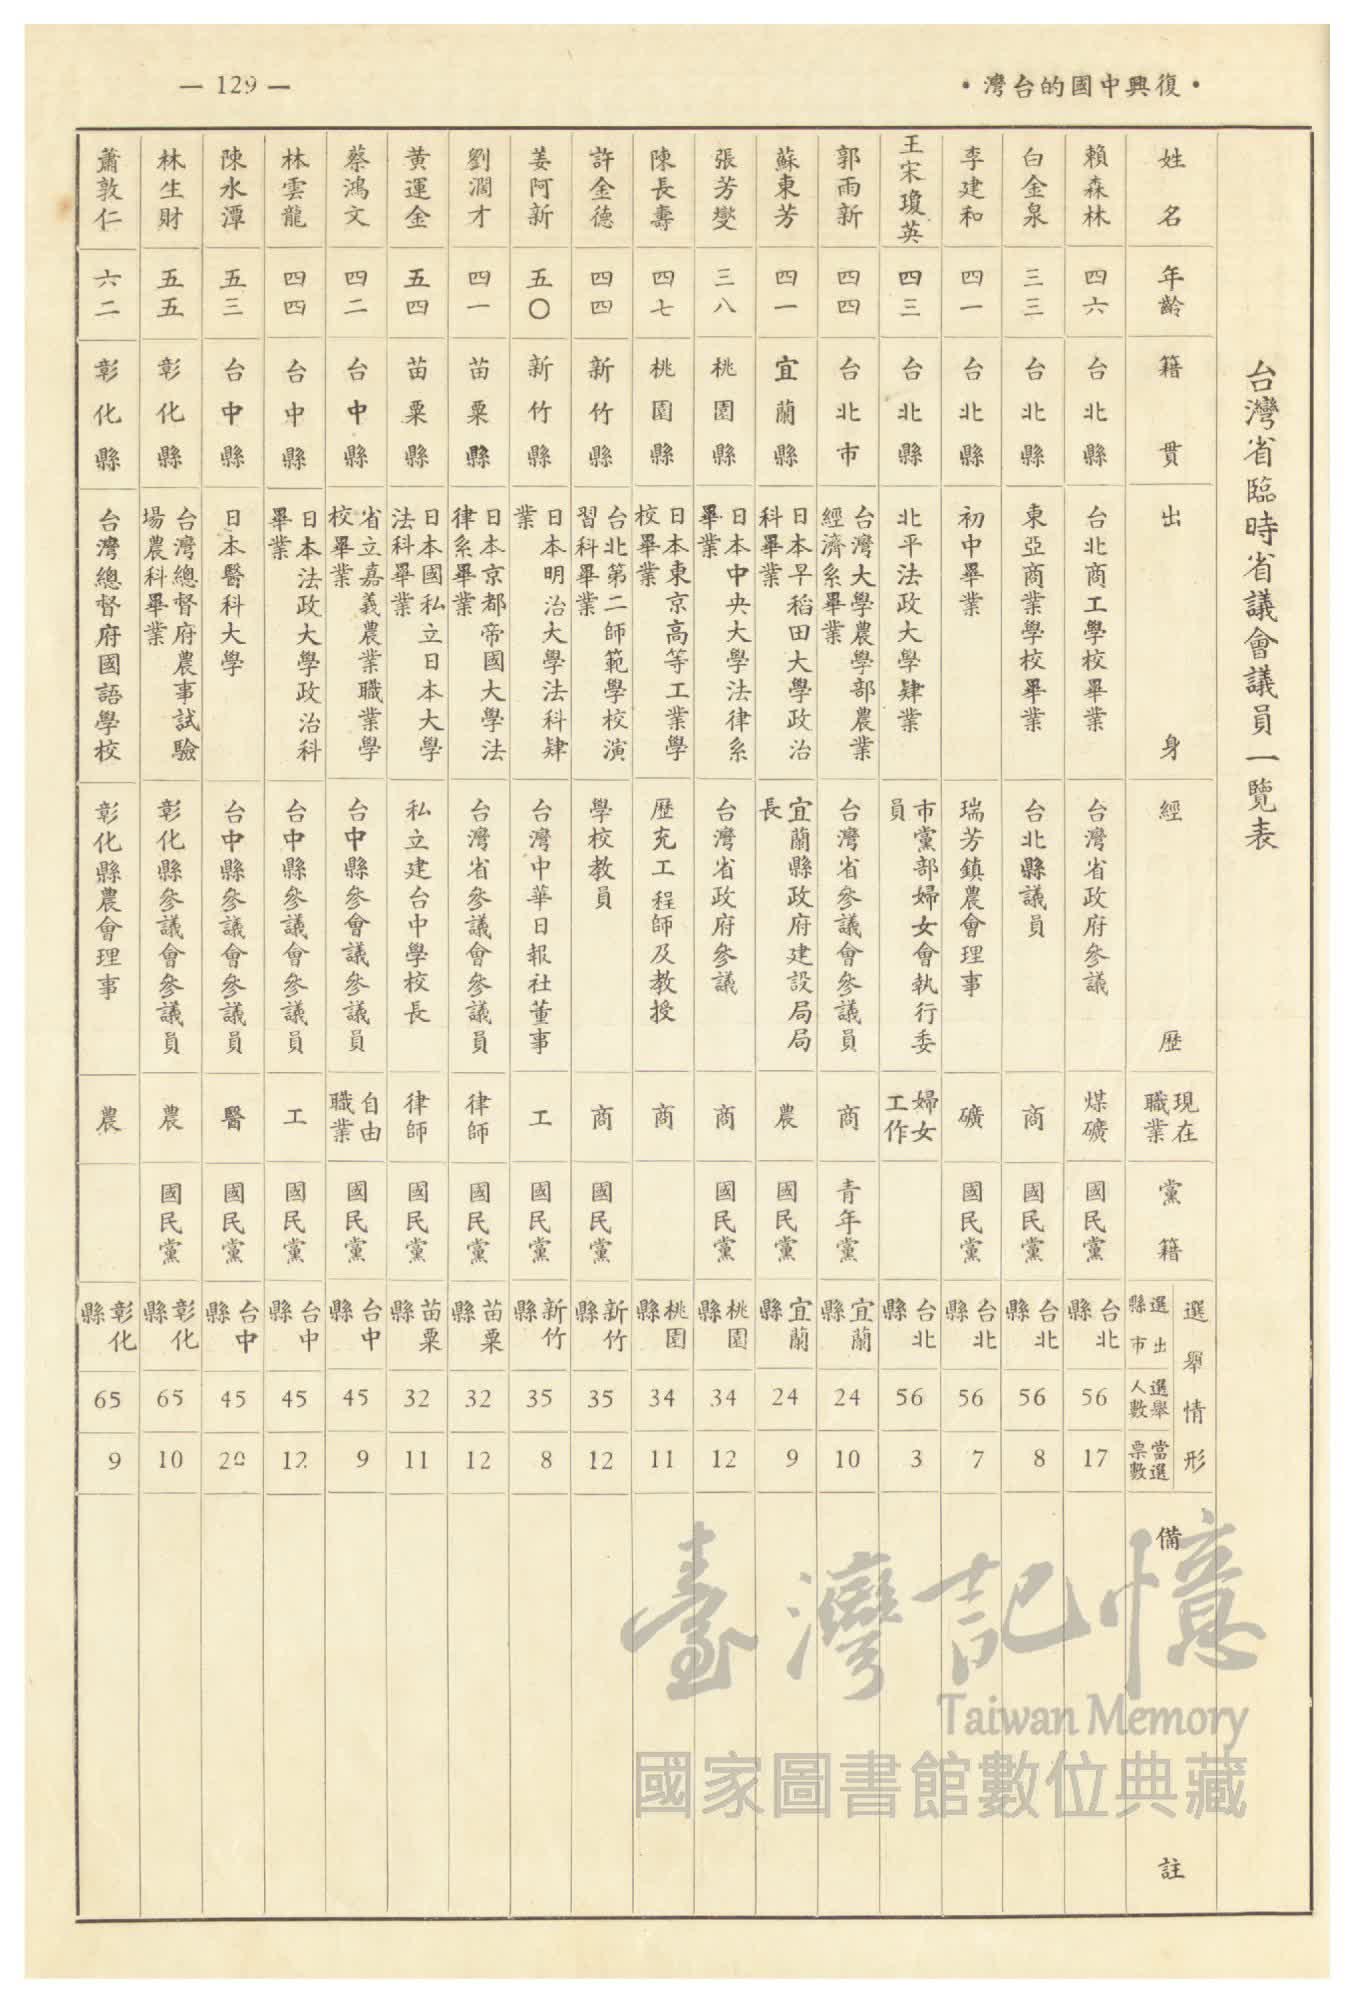 — 129 —
・灣台的國中興復・
台灣省臨時省議會議員一覽表
姓名 年齡 籍貫 出身 經歷 現在職業 黨籍 選舉情形 選出縣市 選舉人數 當選票數 備註
賴森林 四六 台北縣 台北商工學校畢業 台灣省政府參議 煤礦 國民黨 台北縣 56 17
白金泉 三三 台北縣 東亞商業學校畢業 台北縣議員 商 國民黨 台北縣 56 8
李建和 四一 台北縣 初中畢業 瑞芳鎮農會理事 礦 國民黨 台北縣 56 7
王宋瓊英 四三 台北縣 北平法政大學肄業 市黨部婦女會執行委員 婦女工作 台北縣 56 3
郭雨新 四四 台北市 台灣大學農學部農業經濟系畢業 台灣省參議會參議員 商 青年黨 宜蘭縣 24 10
蘇東芳 四一 宜蘭縣 日本早稻田大學政治科畢業 宜蘭縣政府建設局局長 農 國民黨 宜蘭縣 24 9
張芳燮 三八 桃園縣 日本中央大學法律系畢業 台灣省政府參議 商 國民黨 桃園縣 34 12
陳長壽 四七 桃園縣 日本東京高等工業學校畢業 歷充工程師及教授 商 桃園縣 34 11
許金德 四四 新竹縣 台北第二師範學校演習科畢業 學校教員 商 國民黨 新竹縣 35 12
姜阿新 五〇 新竹縣 日本明治大學法科肄業 台灣中華日報社董事 工 國民黨 新竹縣 35 8
劉濶才 四一 苗栗縣 日本京都帝國大學法律系畢業 台灣省參議會參議員 律師 國民黨 苗栗縣 32 12
黃運金 五四 苗栗縣 日本國私立日本大學法科畢業 私立建台中學校長 律師 國民黨 苗栗縣 32 11
蔡鴻文 四二 台中縣 省立嘉義農業職業學校畢業 台中縣參會議參議員 自由職業 國民黨 台中縣 45 9
林雲龍 四四 台中縣 日本法政大學政治科畢業 台中縣參議會參議員 工 國民黨 台中縣 45 12
陳水潭 五三 台中縣 日本醫科大學 台中縣參議會參議員 醫 國民黨 台中縣 45 20
林生財 五五 彰化縣 台灣總督府農事試驗場農科畢業 彰化縣參議會參議員 農 國民黨 彰化縣 65 10
蕭敦仁 六二 彰化縣 台灣總督府國語學校 彰化縣農會理事 農 彰化縣 65 9
臺灣記憶
Taiwan Memory
國家圖書館數位典藏